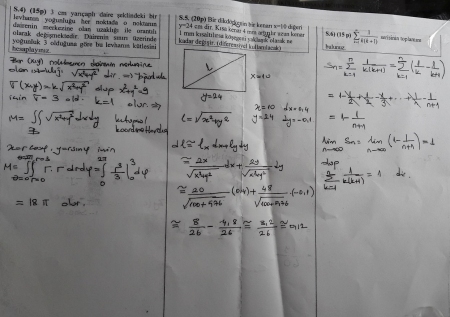 S.4) (15p) 3 cm yarıçaplı daire şeklindeki bir
levhanın yoğunluğu her noktada o noktanın
dairenin merkezine olan uzaklığı ile orantılı
olarak değişmektedir. Dairenin sınırı üzerinde
yoğunluk 3 olduğuna göre bu levhanın kütlesini
hesaplayınız.
olan uzaklığı √x²+y² dir.
σ(x,y) = k√x²+y² olup x²+y²=9
için σ=3 old. k=1 olur.
M = ∬ √x²+y² dxdy kutupsal
koordinatlarda
x=r cosφ, y=r sinφ için
= 18 π olur.
S.5. (20p) Bir dikdörtgenin bir kenarı x=10 diğeri
y=24 cm dir. Kısa kenar 4 mm uzun kenar
1 mm kısaltılırsa köşegeni yaklaşık olarak ne
kadar değişir. (diferensiyel kullanılacak)
l
x=10
y=24
x=10 dx=0,4
l = √x²+y² y=24 dy=-0,1
dl ≅ lx dx + ly dy
≅ 2x/√x²+y² dx + 2y/√x²+y² dy
≅ 20/√100+576 (0,4) + 48/√100+576 (-0,1)
≅ 8/26 - 4,8/26 ≅ 3,2/26 ≅ 0,12
S.6) (15p) ∑ 1/k(k+1) serisinin toplamını
bulunuz.
Sn = ∑ 1/k(k+1) = ∑ (1/k - 1/k+1)
= 1 - 1/n+1
lim Sn = lim (1 - 1/n+1) = 1
olup
∑ 1/k(k+1) = 1 dir.